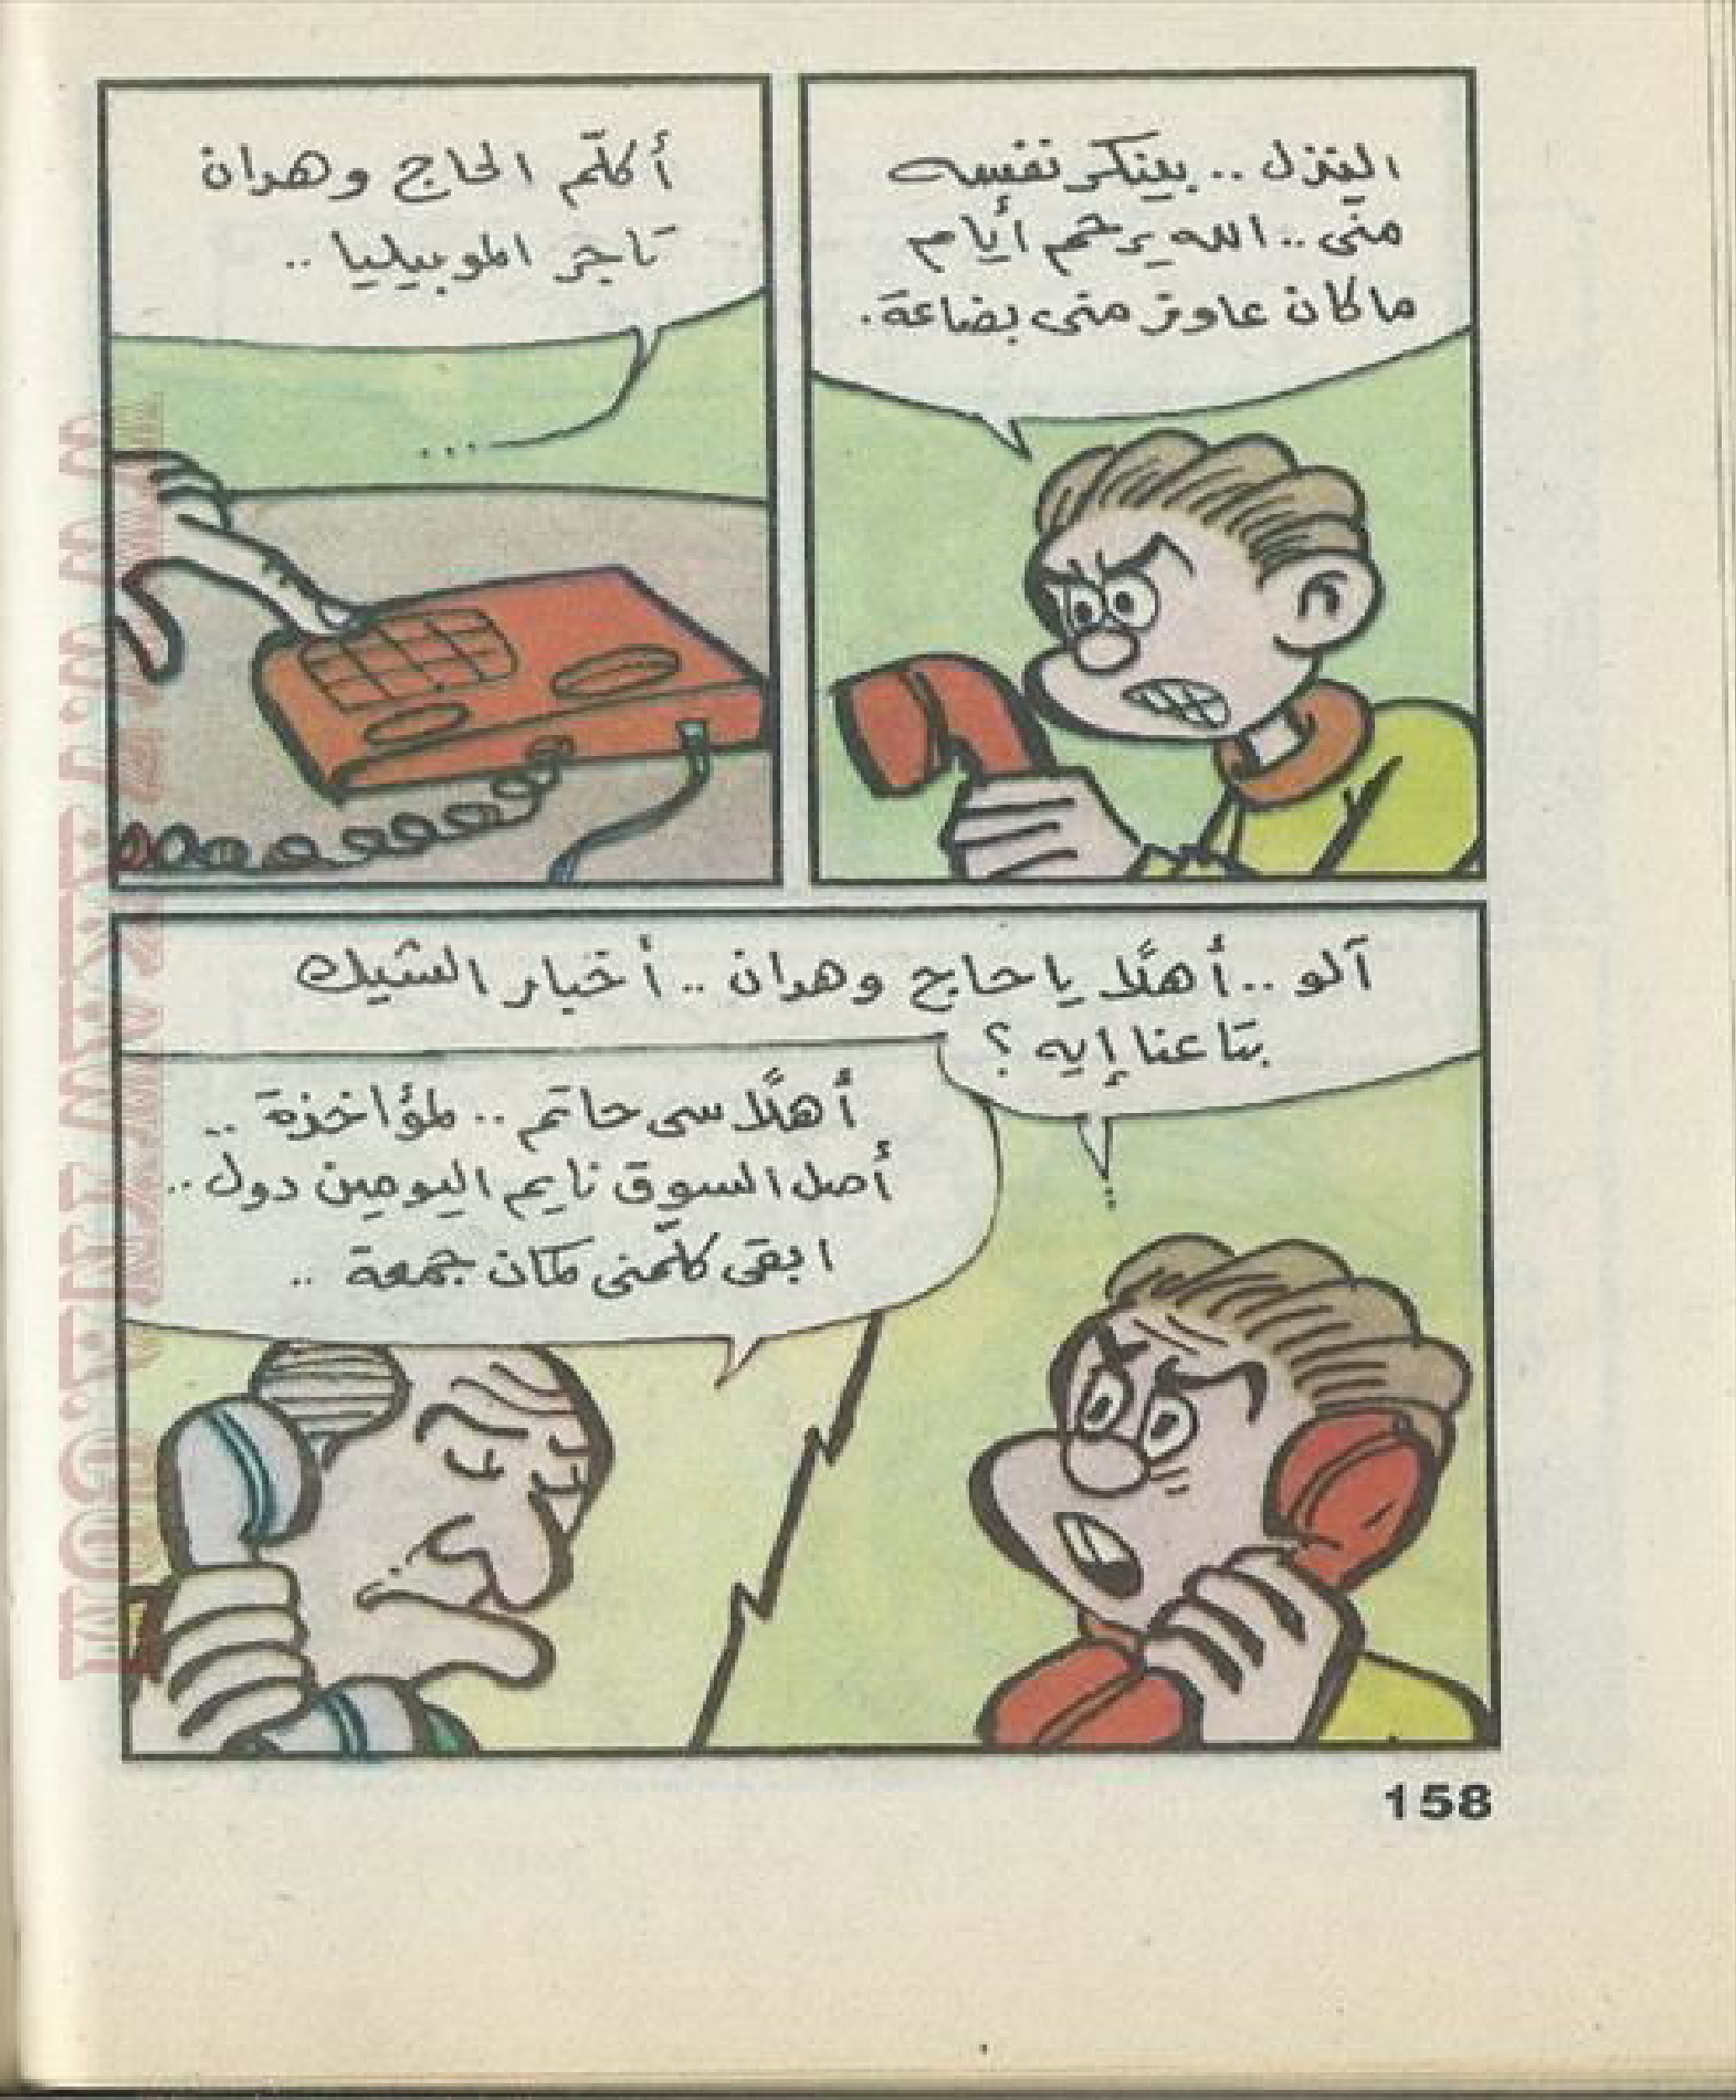 الننزل .. بينكر نفسه
منّى .. الله يرحم أيام
ما كان عاوز منى بضاعة .
أكلّم الحاج وهدان
تاجر الموبيليا ..
آلو .. أهلًا يا حاج وهدان .. أخبار الشيك
بتاعنا إيه ؟
أهلًا سى حاتم .. لمؤاخذة ..
أصل السوق نايم اليومين دول ..
ابقى كلّمنى كمان جمعة ..
158